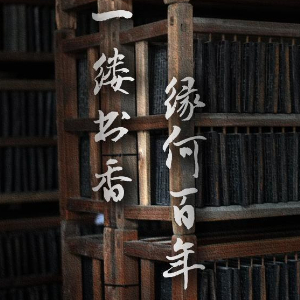 一缕书香
缘何百年